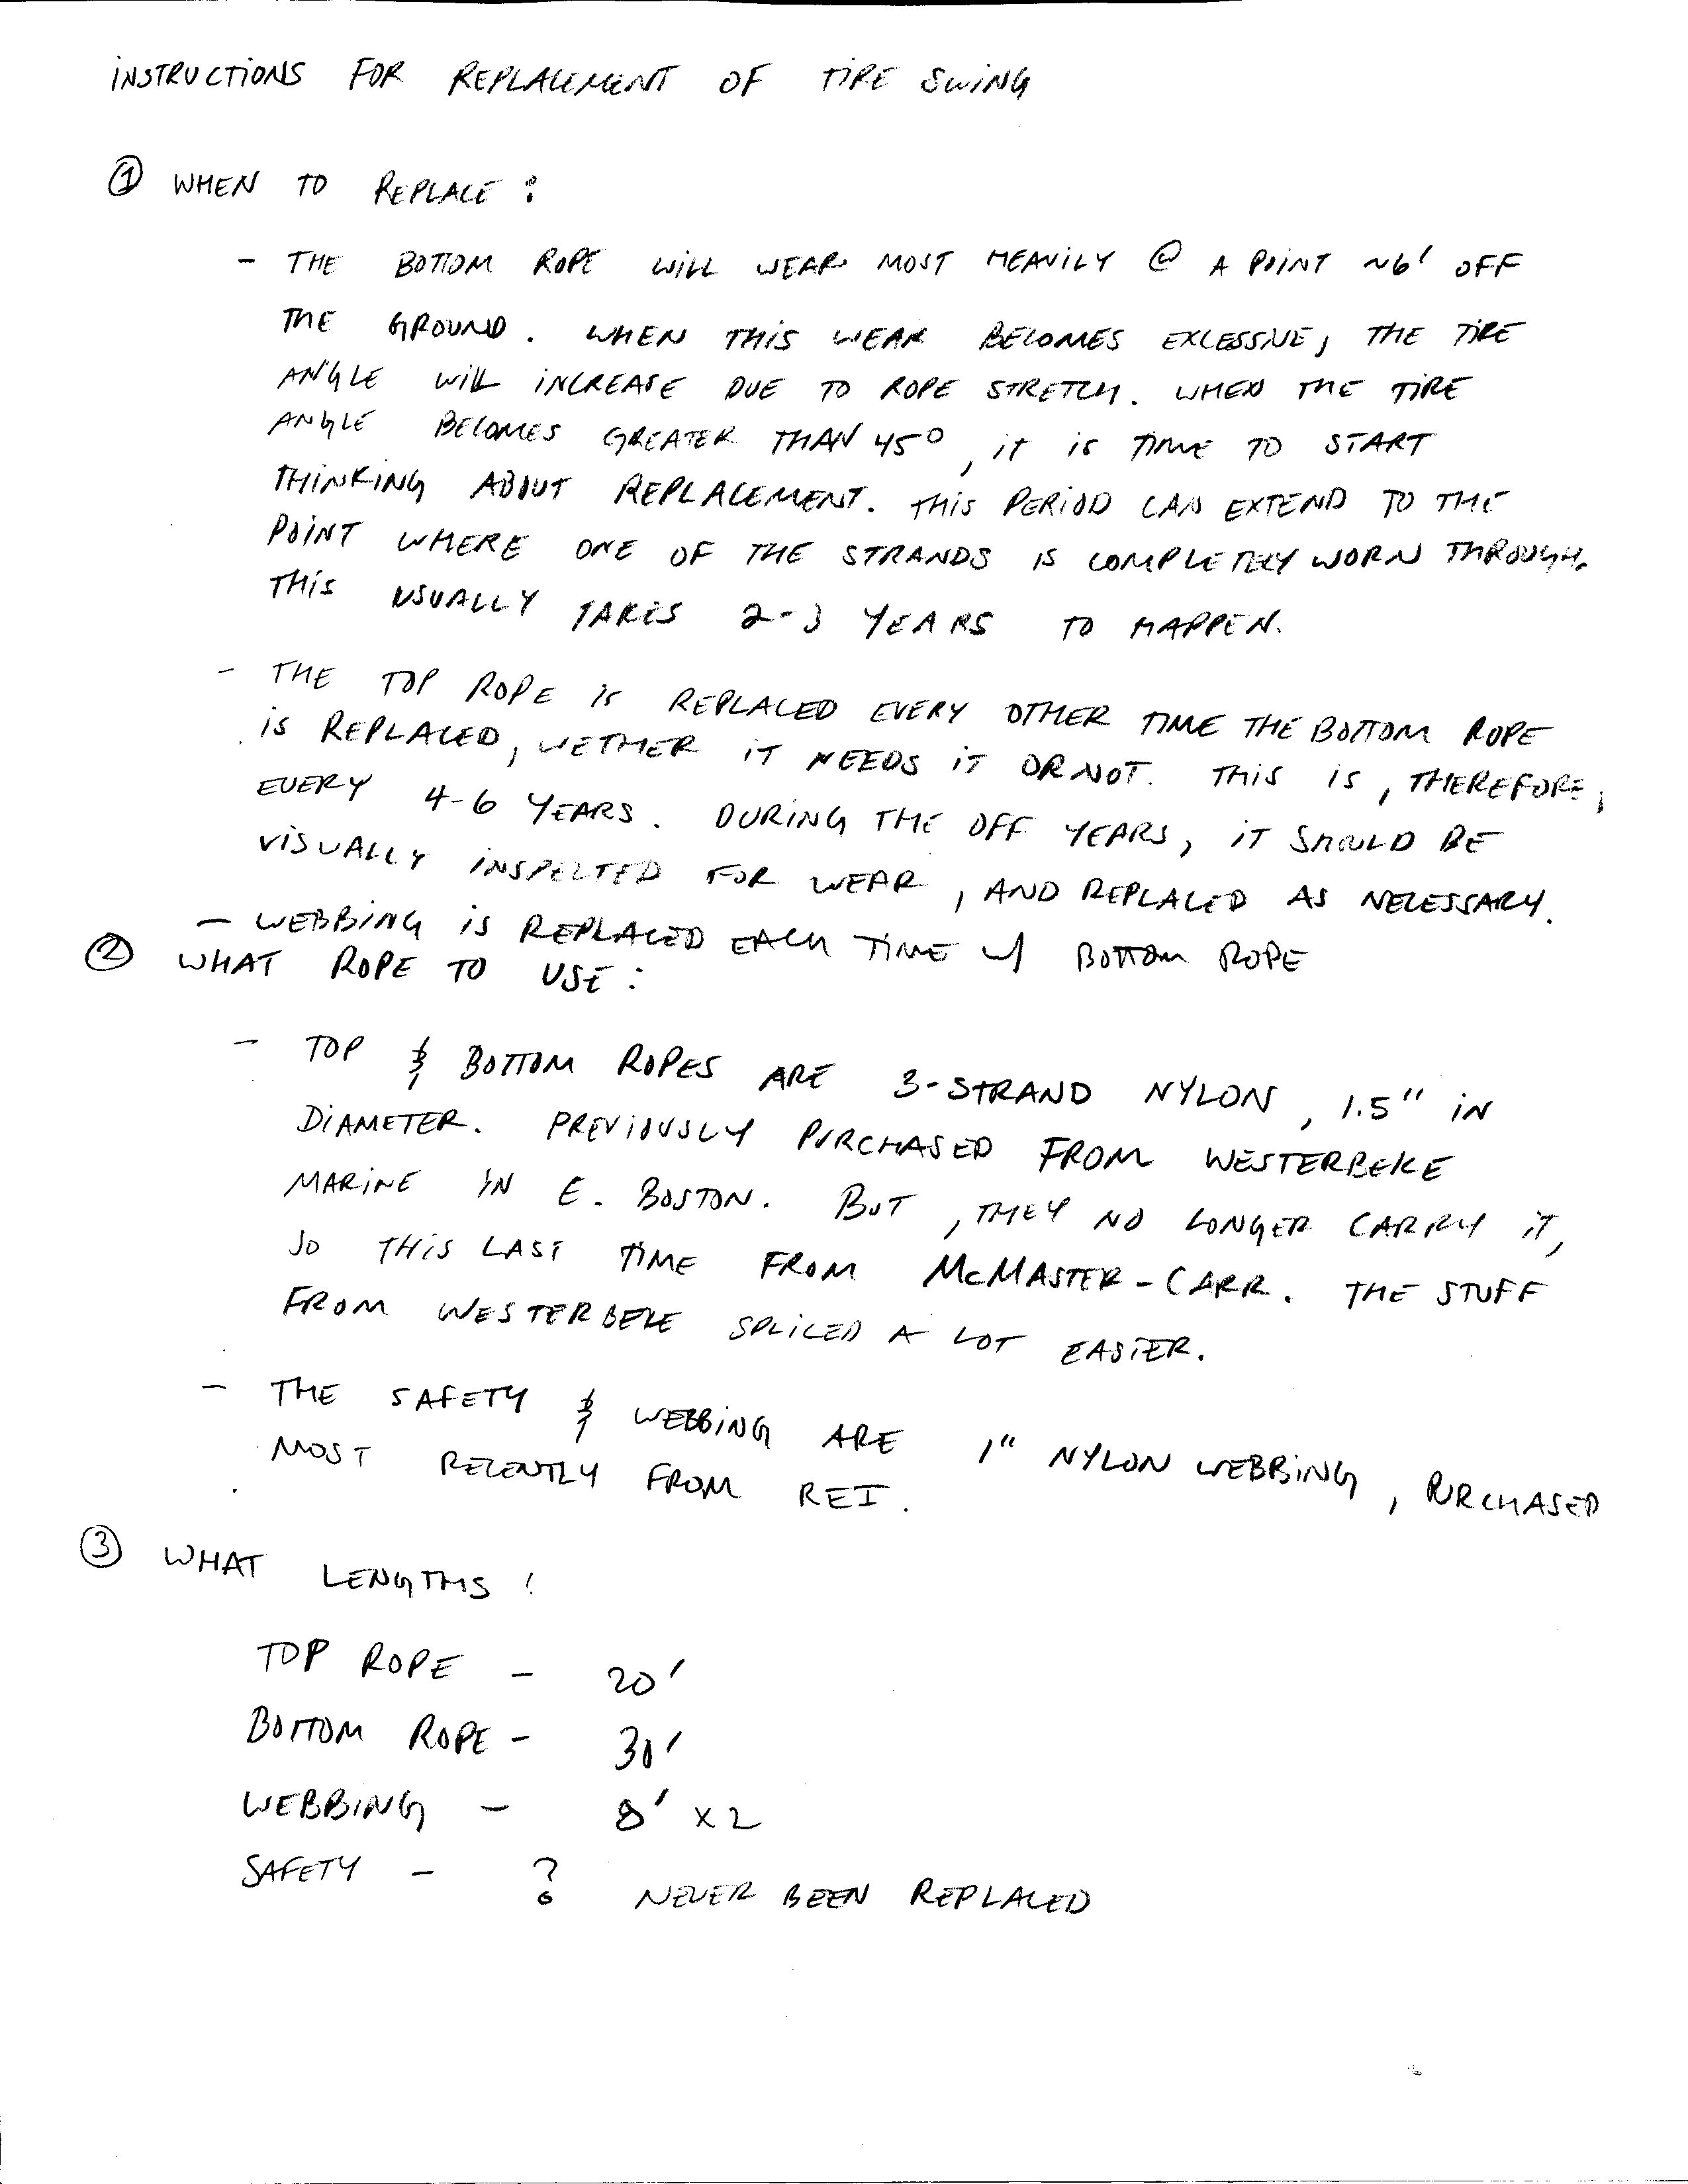 INSTRUCTIONS FOR REPLACEMENT OF TIRE SWING
① WHEN TO REPLACE:
- THE BOTTOM ROPE WILL WEAR MOST HEAVILY @ A POINT ~6' OFF
THE GROUND. WHEN THIS WEAR BECOMES EXCESSIVE, THE TIRE
ANGLE WILL INCREASE DUE TO ROPE STRETCH. WHEN THE TIRE
ANGLE BECOMES GREATER THAN 45°, IT IS TIME TO START
THINKING ABOUT REPLACEMENT. THIS PERIOD CAN EXTEND TO THE
POINT WHERE ONE OF THE STRANDS IS COMPLETELY WORN THROUGH.
THIS USUALLY TAKES 2-3 YEARS TO HAPPEN.
- THE TOP ROPE IS REPLACED EVERY OTHER TIME THE BOTTOM ROPE
IS REPLACED, WETHER IT NEEDS IT OR NOT. THIS IS, THEREFORE,
EVERY 4-6 YEARS. DURING THE OFF YEARS, IT SHOULD BE
VISUALLY INSPECTED FOR WEAR, AND REPLACED AS NECESSARY.
- WEBBING IS REPLACED EACH TIME W/ BOTTOM ROPE
② WHAT ROPE TO USE:
- TOP & BOTTOM ROPES ARE 3-STRAND NYLON, 1.5" IN
DIAMETER. PREVIOUSLY PURCHASED FROM WESTERBEKE
MARINE IN E. BOSTON. BUT, THEY NO LONGER CARRY IT,
SO THIS LAST TIME FROM McMASTER-CARR. THE STUFF
FROM WESTERBEKE SPLICED A LOT EASIER.
- THE SAFETY & WEBBING ARE 1" NYLON WEBBING, PURCHASED
MOST RECENTLY FROM REI.
③ WHAT LENGTHS:
TOP ROPE - 20'
BOTTOM ROPE - 30'
WEBBING - 8' x 2
SAFETY - ? NEVER BEEN REPLACED